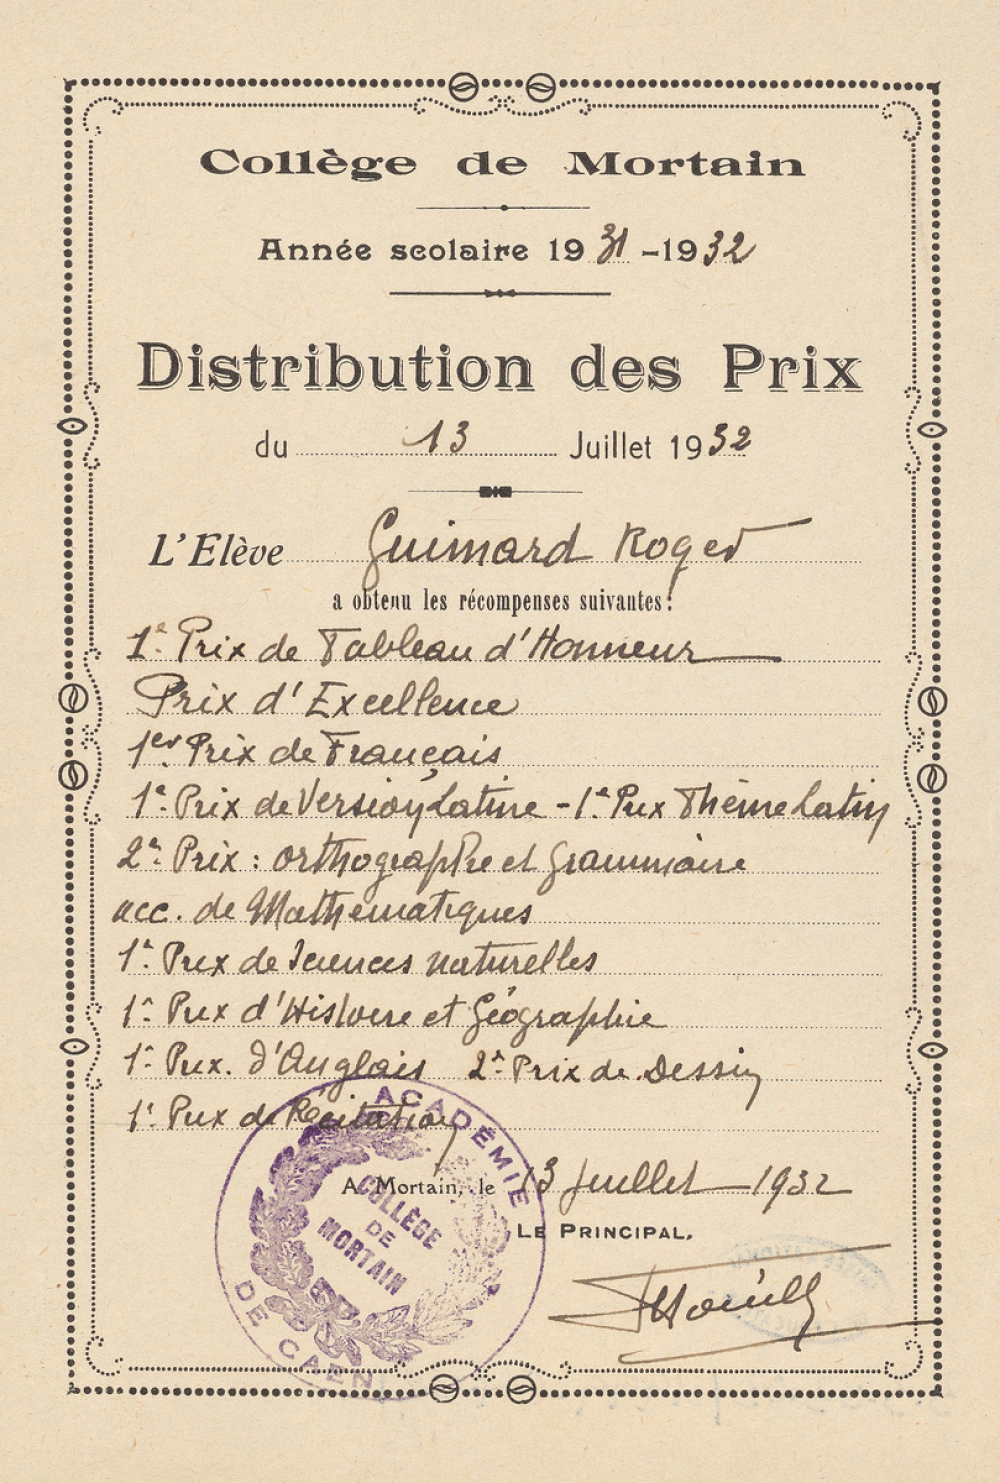 Collège de Mortain
Année scolaire 1931-1932
Distribution des Prix
du 13 Juillet 1932
L'Elève Guimard Roger
a obtenu les récompenses suivantes:
1er Prix de Tableau d'Honneur
Prix d'Excellence
1er Prix de Français
1er Prix de Version Latine - 1er Prix Thème Latin
2e Prix : Orthographe et Grammaire
acc. de Mathématiques
1er Prix de Sciences naturelles
1er Prix d'Histoire et Géographie
1er Prix. d'Anglais 2e Prix de Dessin
1er Prix de Récitation
A Mortain, le 13 Juillet 1932
LE PRINCIPAL,
ACADÉMIE
COLLÈGE
DE
MORTAIN
DE CAEN